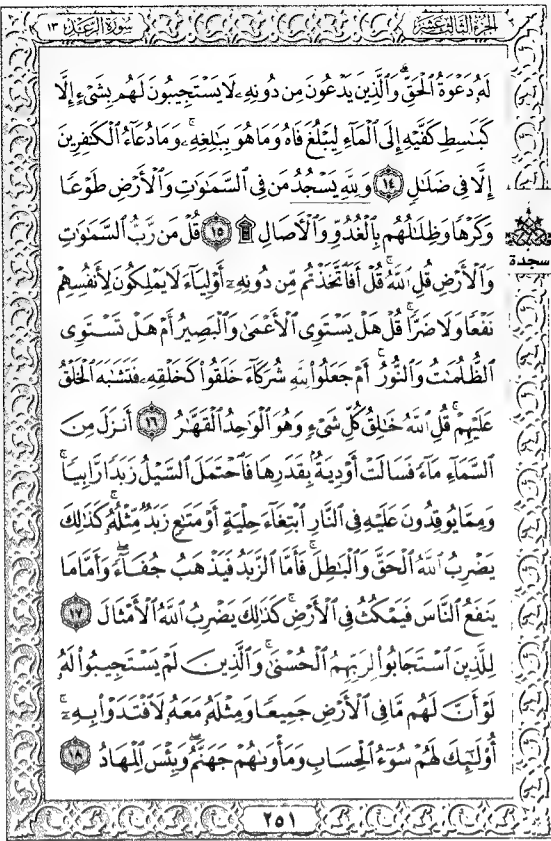 الجزء الثالث عشر
سورة الرعد ١٣
لَهُۥ دَعْوَةُ ٱلْحَقِّ ۖ وَٱلَّذِينَ يَدْعُونَ مِن دُونِهِۦ لَا يَسْتَجِيبُونَ لَهُم بِشَىْءٍ إِلَّا
كَبَٰسِطِ كَفَّيْهِ إِلَى ٱلْمَآءِ لِيَبْلُغَ فَاهُ وَمَا هُوَ بِبَٰلِغِهِۦ ۚ وَمَا دُعَآءُ ٱلْكَٰفِرِينَ
إِلَّا فِى ضَلَٰلٍ ١٤ وَلِلَّهِ يَسْجُدُ مَن فِى ٱلسَّمَٰوَٰتِ وَٱلْأَرْضِ طَوْعًا
وَكَرْهًا وَظِلَٰلُهُم بِٱلْغُدُوِّ وَٱلْءَاصَالِ ۩ ١٥ قُلْ مَن رَّبُّ ٱلسَّمَٰوَٰتِ
سجدة
وَٱلْأَرْضِ قُلِ ٱللَّهُ ۚ قُلْ أَفَٱتَّخَذْتُم مِّن دُونِهِۦٓ أَوْلِيَآءَ لَا يَمْلِكُونَ لِأَنفُسِهِمْ
نَفْعًا وَلَا ضَرًّا ۚ قُلْ هَلْ يَسْتَوِى ٱلْأَعْمَىٰ وَٱلْبَصِيرُ أَمْ هَلْ تَسْتَوِى
ٱلظُّلُمَٰتُ وَٱلنُّورُ ۗ أَمْ جَعَلُوا۟ لِلَّهِ شُرَكَآءَ خَلَقُوا۟ كَخَلْقِهِۦ فَتَشَٰبَهَ ٱلْخَلْقُ
عَلَيْهِمْ ۚ قُلِ ٱللَّهُ خَٰلِقُ كُلِّ شَىْءٍ وَهُوَ ٱلْوَٰحِدُ ٱلْقَهَّٰرُ ١٦ أَنزَلَ مِنَ
ٱلسَّمَآءِ مَآءً فَسَالَتْ أَوْدِيَةٌۢ بِقَدَرِهَا فَٱحْتَمَلَ ٱلسَّيْلُ زَبَدًا رَّابِيًا ۚ
وَمِمَّا يُوقِدُونَ عَلَيْهِ فِى ٱلنَّارِ ٱبْتِغَآءَ حِلْيَةٍ أَوْ مَتَٰعٍ زَبَدٌ مِّثْلُهُۥ ۚ كَذَٰلِكَ
يَضْرِبُ ٱللَّهُ ٱلْحَقَّ وَٱلْبَٰطِلَ ۚ فَأَمَّا ٱلزَّبَدُ فَيَذْهَبُ جُفَآءً ۖ وَأَمَّا مَا
يَنفَعُ ٱلنَّاسَ فَيَمْكُثُ فِى ٱلْأَرْضِ ۚ كَذَٰلِكَ يَضْرِبُ ٱللَّهُ ٱلْأَمْثَالَ ١٧
لِلَّذِينَ ٱسْتَجَابُوا۟ لِرَبِّهِمُ ٱلْحُسْنَىٰ ۚ وَٱلَّذِينَ لَمْ يَسْتَجِيبُوا۟ لَهُۥ
لَوْ أَنَّ لَهُم مَّا فِى ٱلْأَرْضِ جَمِيعًا وَمِثْلَهُۥ مَعَهُۥ لَٱفْتَدَوْا۟ بِهِۦٓ ۚ
أُو۟لَٰٓئِكَ لَهُمْ سُوٓءُ ٱلْحِسَابِ وَمَأْوَىٰهُمْ جَهَنَّمُ ۖ وَبِئْسَ ٱلْمِهَادُ ١٨
٢٥١